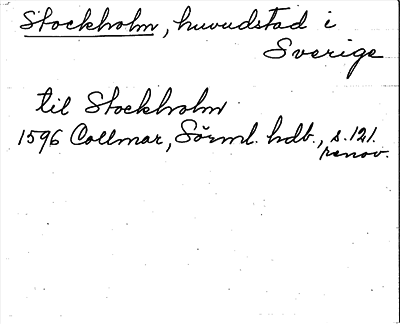 Stockholm, huvudstad i
Sverige
til Stockholm
1596 Collmar, Sörml. hdb., s. 121.
renov.